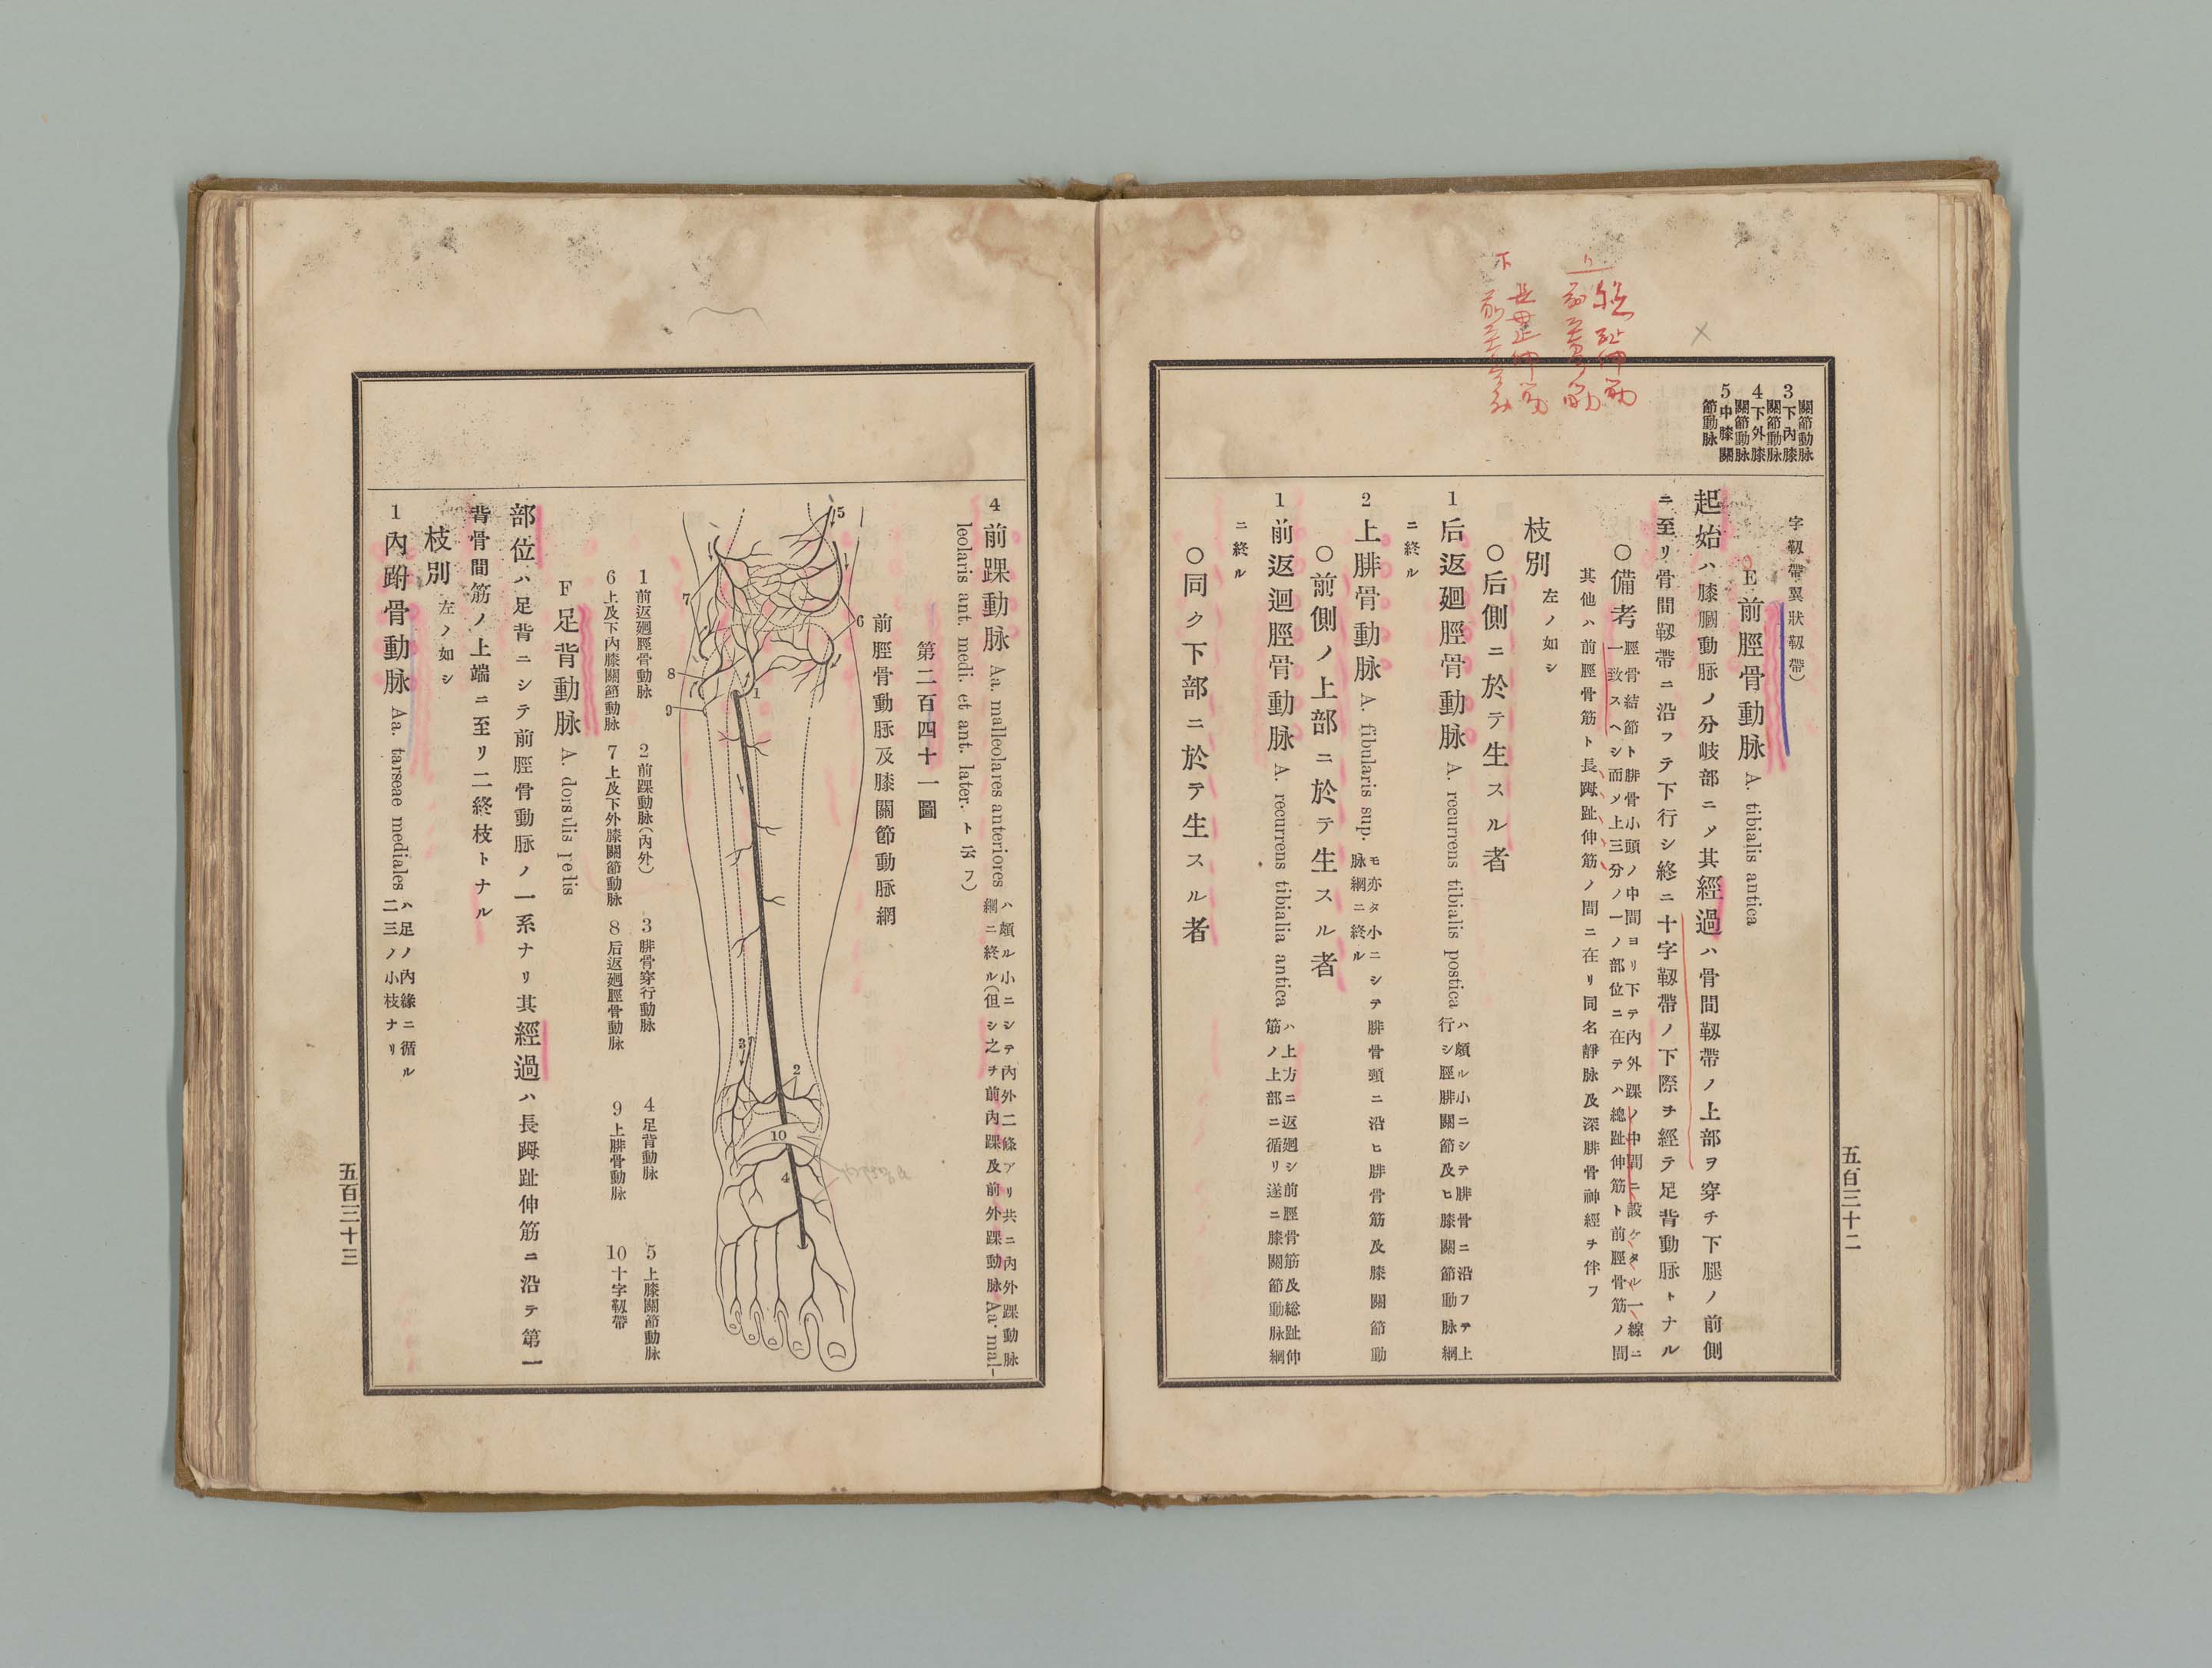 關節動脈
3下內膝
關節動脈
4下外膝
關節動脈
5中膝關
節動脈
字靱帶翼狀靱帶)
E 前脛骨動脈 A. tibialis antica
起始ハ膝膕動脈ノ分岐部ニ〆其經過ハ骨間靱帶ノ上部ヲ穿チ下腿ノ前側
ニ至リ骨間靱帶ニ沿フテ下行シ終ニ十字靱帶ノ下際ヲ經テ足背動脈トナル
○備考 脛骨結節ト腓骨小頭ノ中間ヨリ下テ內外踝ノ中間ニ設ケタル一線ニ
一致スヘシ而〆上三分ノ一ノ部位ニ在テハ總趾伸筋ト前脛骨筋ノ間
其他ハ前脛骨筋ト長踇趾伸筋ノ間ニ在リ同名靜脈及深腓骨神經ヲ伴フ
枝別 左ノ如シ
○后側ニ於テ生スル者
1 后返廻脛骨動脈 A. recurrens tibialis postica ハ頗ル小ニシテ腓骨ニ沿フテ上
行シ脛腓關節及ヒ膝關節動脈網
ニ終ル
2 上腓骨動脈 A. fibularis sup. モ亦タ小ニシテ腓骨頸ニ沿ヒ腓骨筋及膝關節動
脈網ニ終ル
○前側ノ上部ニ於テ生スル者
1 前返迴脛骨動脈 A. recurrens tibialia antica ハ上方ニ返廻シ前脛骨筋及総趾伸
筋ノ上部ニ循リ遂ニ膝關節動脈網
ニ終ル
○同ク下部ニ於テ生スル者
五百三十二
4 前踝動脈 Aa. malleolares anteriores ハ頗ル小ニシテ內外二條アリ共ニ內外踝動脈
網ニ終ル(但シ之ヲ前內踝及前外踝動脈 Aa. mal-
leolaris ant. medi. et ant. later. ト云フ)
第二百四十一圖
前脛骨動脈及膝關節動脈網
5
7
6
8
1
9
3
2
10
4
1前返廻脛骨動脈 2前踝動脈(內外) 3腓骨穿行動脈 4足背動脈 5上膝關節動脈
6上及下內膝關節動脈 7上及下外膝關節動脈 8后返廻脛骨動脈 9上腓骨動脈 10十字靱帶
F 足背動脈 A. dorsalis pelis
部位ハ足背ニシテ前脛骨動脈ノ一系ナリ其經過ハ長踇趾伸筋ニ沿テ第一
背骨間筋ノ上端ニ至リ二終枝トナル
枝別 左ノ如シ
1 內跗骨動脈 Aa. tarseae mediales ハ足ノ內緣ニ循ル
二三ノ小枝ナリ
五百三十三